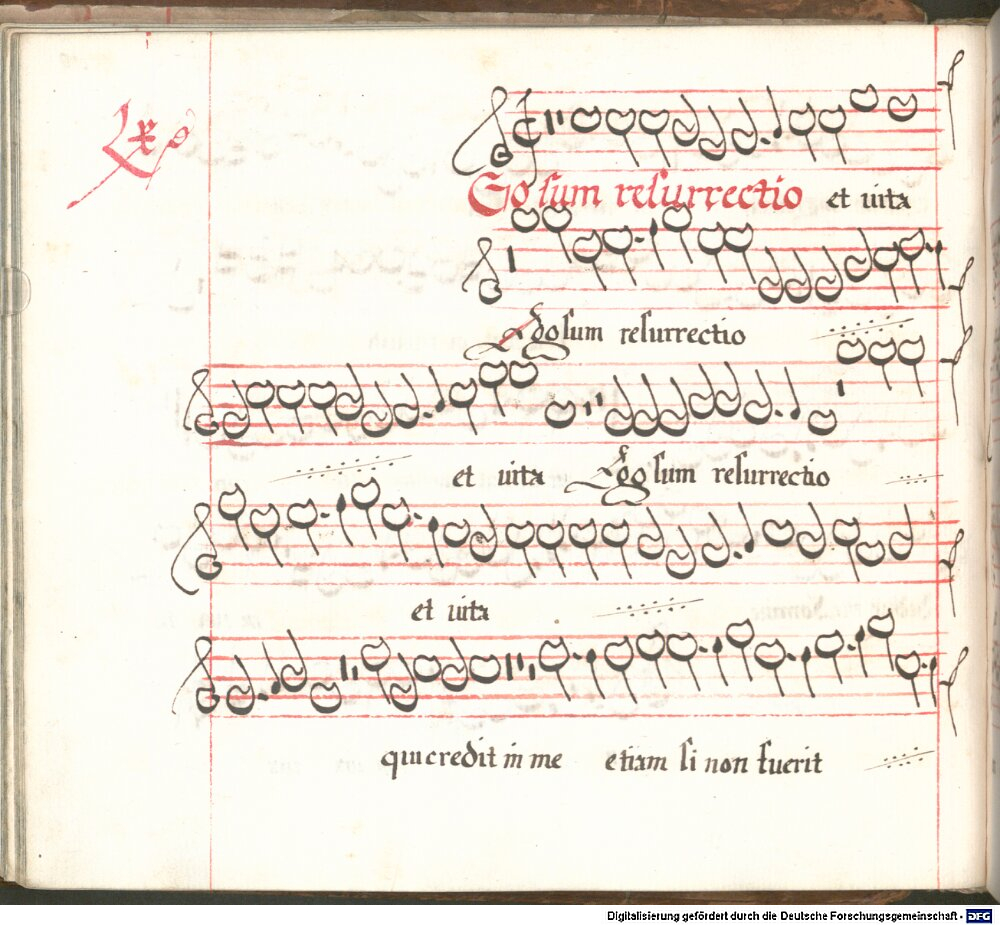 Go sum resurrectio et uita
Ego sum resurrectio
et uita Ego sum resurrectio
et uita
qui credit in me etiam si non fuerit
Digitalisierung gefördert durch die Deutsche Forschungsgemeinschaft - DFG